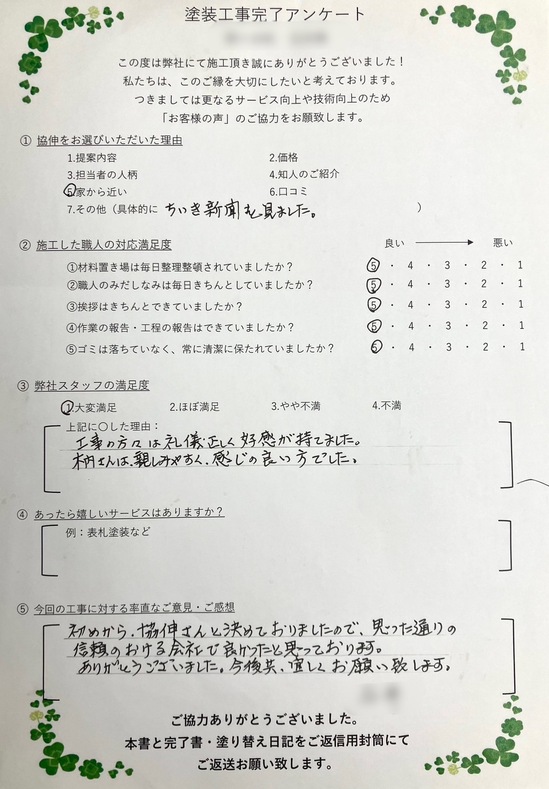 塗装工事完了アンケート
この度は弊社にて施工頂き誠にありがとうございました！
私たちは、このご縁を大切にしたいと考えております。
つきましては更なるサービス向上や技術向上のため
「お客様の声」のご協力をお願致します。
① 協伸をお選びいただいた理由
1.提案内容 2.価格
3.担当者の人柄 4.知人のご紹介
5.家から近い 6.口コミ
7.その他（具体的に ちいき新聞を見ました。 ）
② 施工した職人の対応満足度 良い 悪い
①材料置き場は毎日整理整頓されていましたか？ 5 ・ 4 ・ 3 ・ 2 ・ 1
②職人のみだしなみは毎日きちんとしていましたか？ 5 ・ 4 ・ 3 ・ 2 ・ 1
③挨拶はきちんとできていましたか？ 5 ・ 4 ・ 3 ・ 2 ・ 1
④作業の報告・工程の報告はできていましたか？ 5 ・ 4 ・ 3 ・ 2 ・ 1
⑤ゴミは落ちていなく、常に清潔に保たれていましたか？ 5 ・ 4 ・ 3 ・ 2 ・ 1
③ 弊社スタッフの満足度
1.大変満足 2.ほぼ満足 3.やや不満 4.不満
上記に〇した理由：
工事の方々は礼儀正しく好感が持てました。
柄さんは、親しみやすく、感じの良い方でした。
④ あったら嬉しいサービスはありますか？
例：表札塗装など
⑤ 今回の工事に対する率直なご意見・ご感想
初めから、協伸さんと決めておりましたので、思った通りの
信頼のおける会社で良かったと思っております。
ありがとうございました。今後共、宜しくお願い致します。
ご協力ありがとうございました。
本書と完了書・塗り替え日記をご返信用封筒にて
ご返送お願い致します。